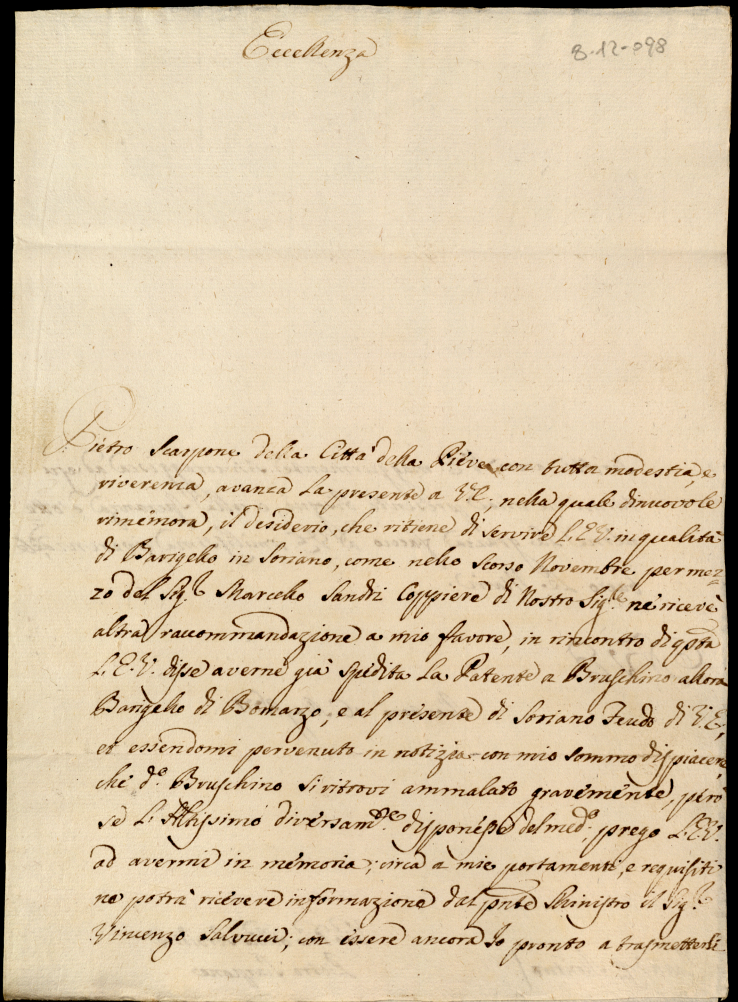 Eccellenza
8-12-098
Pietro Scarpone della Città della Pieve con tutta modestia, e
riverenza, avanza la presente a V.E., nella quale dinuovo le
rimémora, il desiderio, che ritiene di servire L.E.V. in qualità
di Barigello in Soriano, come nello scorso Novembre per mez-
zo del Sig.r Marcello Sandri Coppiere di Nostro Sig.re né ricevè
altra raccommandazione a mio favore, in rincontro di qsta
L.E.V. disse averne già spidita la Patente a Bruschino allora
Barigello di Bomarzo, e al présente di Soriano Feudo di V.E,
et essendomi pervenuto in notizia con mio sommo dispiacere
ché d.o Bruschino si ritrovi ammalato gravémente, però
sé L'Altissimo diversam.te disponésse del med.o, prego L.E.V.
ad avermi in mémoria; circa a miei portamenti, e requisiti
ne potrà ricévere informazione dal pnte Ministro il Sig.r
Vincenzo Salvucci; con éssere ancora Io pronto a trasmetterli